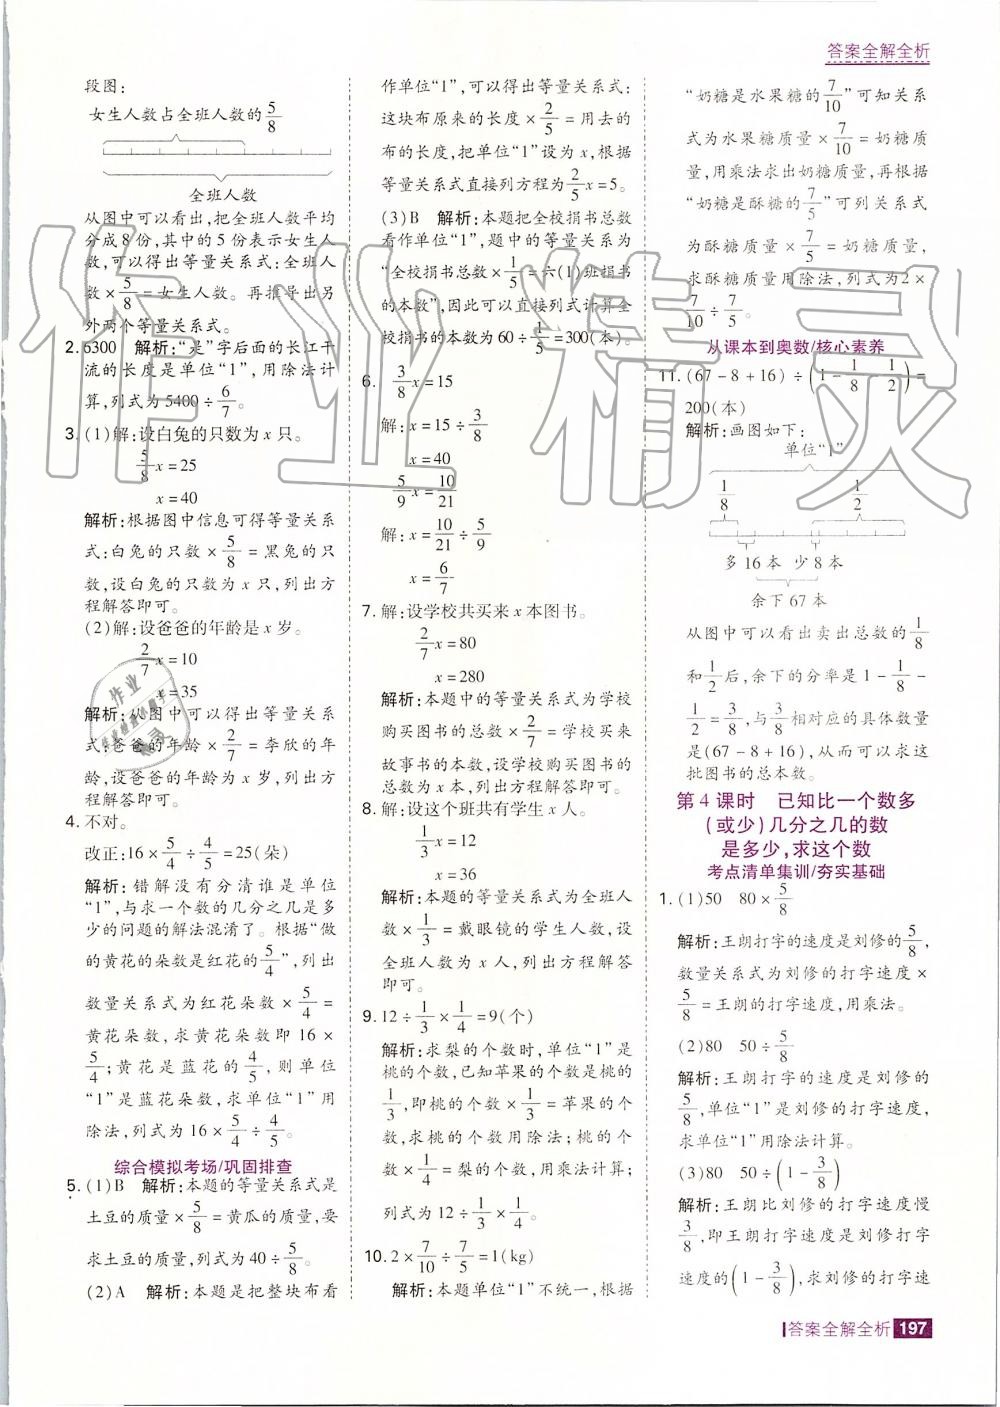 答案全解全析
段图:
女生人数占全班人数的5/8
全班人数
从图中可以看出,把全班人数平均
分成8份,其中的5份表示女生人
数,可以得出等量关系式:全班人
数×5/8=女生人数。再推导出另
外两个等量关系式。
2. 6300 解析:“是”字后面的长江干
流的长度是单位“1”,用除法计
算,列式为5400÷6/7。
3. (1)解:设白兔的只数为x只。
5/8x=25
x=40
解析:根据图中信息可得等量关系
式:白兔的只数×5/8=黑兔的只
数,设白兔的只数为x只,列出方
程解答即可。
(2)解:设爸爸的年龄是x岁。
2/7x=10
x=35
解析:从图中可以得出等量关系
式:爸爸的年龄×2/7=李欣的年
龄,设爸爸的年龄为x岁,列出方
程解答即可。
4. 不对。
改正:16×5/4÷4/5=25(朵)
解析:错解没有分清谁是单位
“1”,与求一个数的几分之几是多
少的问题的解法混淆了。根据“做
的黄花的朵数是红花的5/4”,列出
数量关系式为红花朵数×5/4=
黄花朵数,求黄花朵数即16×
5/4;黄花是蓝花的4/5,则单位
“1”是蓝花朵数,求单位“1”用
除法,列式为16×5/4÷4/5。
综合模拟考场/巩固排查
5. (1)B 解析:本题的等量关系式是
土豆的质量×5/8=黄瓜的质量,要
求土豆的质量,列式为40÷5/8。
(2)A 解析:本题是把整块布看
作单位“1”,可以得出等量关系式:
这块布原来的长度×2/5=用去的
布的长度,把单位“1”设为x,根据
等量关系式直接列方程为2/5x=5。
(3)B 解析:本题把全校捐书总数
看作单位“1”,题中的等量关系为
“全校捐书总数×1/5=六(1)班捐书
的本数”,因此可以直接列式计算全
校捐书的本数为60÷1/5=300(本)。
6. 3/8x=15
解:x=15÷3/8
x=40
5/9x=10/21
解:x=10/21÷5/9
x=6/7
7. 解:设学校共买来x本图书。
2/7x=80
x=280
解析:本题中的等量关系式为学校
购买图书的总数×2/7=学校买来
故事书的本数,设学校购买图书的
总数为x本,列出方程解答即可。
8. 解:设这个班共有学生x人。
1/3x=12
x=36
解析:本题的等量关系式为全班人
数×1/3=戴眼镜的学生人数,设
全班人数为x人,列出方程解答
即可。
9. 12÷1/3×1/4=9(个)
解析:求梨的个数时,单位“1”是
桃的个数,已知苹果的个数是桃的
1/3,即桃的个数×1/3=苹果的个
数,求桃的个数用除法;桃的个
数×1/4=梨的个数,用乘法计算,
列式为12÷1/3×1/4。
10. 2×7/10÷7/5=1(kg)
解析:本题单位“1”不统一,根据
“奶糖是水果糖的7/10”可知关系
式为水果糖质量×7/10=奶糖质
量,用乘法求出奶糖质量,再根据
“奶糖是酥糖的7/5”可列关系式
为酥糖质量×7/5=奶糖质量,
求酥糖质量用除法,列式为2×
7/10÷7/5。
从课本到奥数/核心素养
11. (67-8+16)÷(1-1/8-1/2)=
200(本)
解析:画图如下:
单位“1”
1/8 1/2
多16本 少8本
余下67本
从图中可以看出卖出总数的1/8
和1/2后,余下的分率是1-1/8-
1/2=3/8,与3/8相对应的具体数量
是(67-8+16),从而可以求这
批图书的总本数。
第4课时 已知比一个数多
(或少)几分之几的数
是多少,求这个数
考点清单集训/夯实基础
1. (1)50 80×5/8
解析:王朗打字的速度是刘修的5/8,
数量关系式为刘修的打字速度×
5/8=王朗的打字速度,用乘法。
(2)80 50÷5/8
解析:王朗打字的速度是刘修的
5/8,单位“1”是刘修的打字速度,
求单位“1”用除法计算。
(3)80 50÷(1-3/8)
解析:王朗比刘修的打字速度慢
3/8,即王朗打字速度是刘修打字
速度的(1-3/8),求刘修的打字速
答案全解全析 197
作业精灵